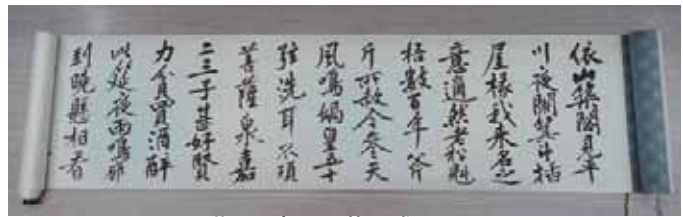 依山築閣見平
川夜闌箕斗插
屋椽我來名之
意適然老松魁
梧數百年斧
斤所赦今參天
風鳴媧皇五十
弦洗耳不須
菩薩泉嘉
二三子甚好賢
力貧買酒醉
此筵夜雨鳴廊
到曉懸相看